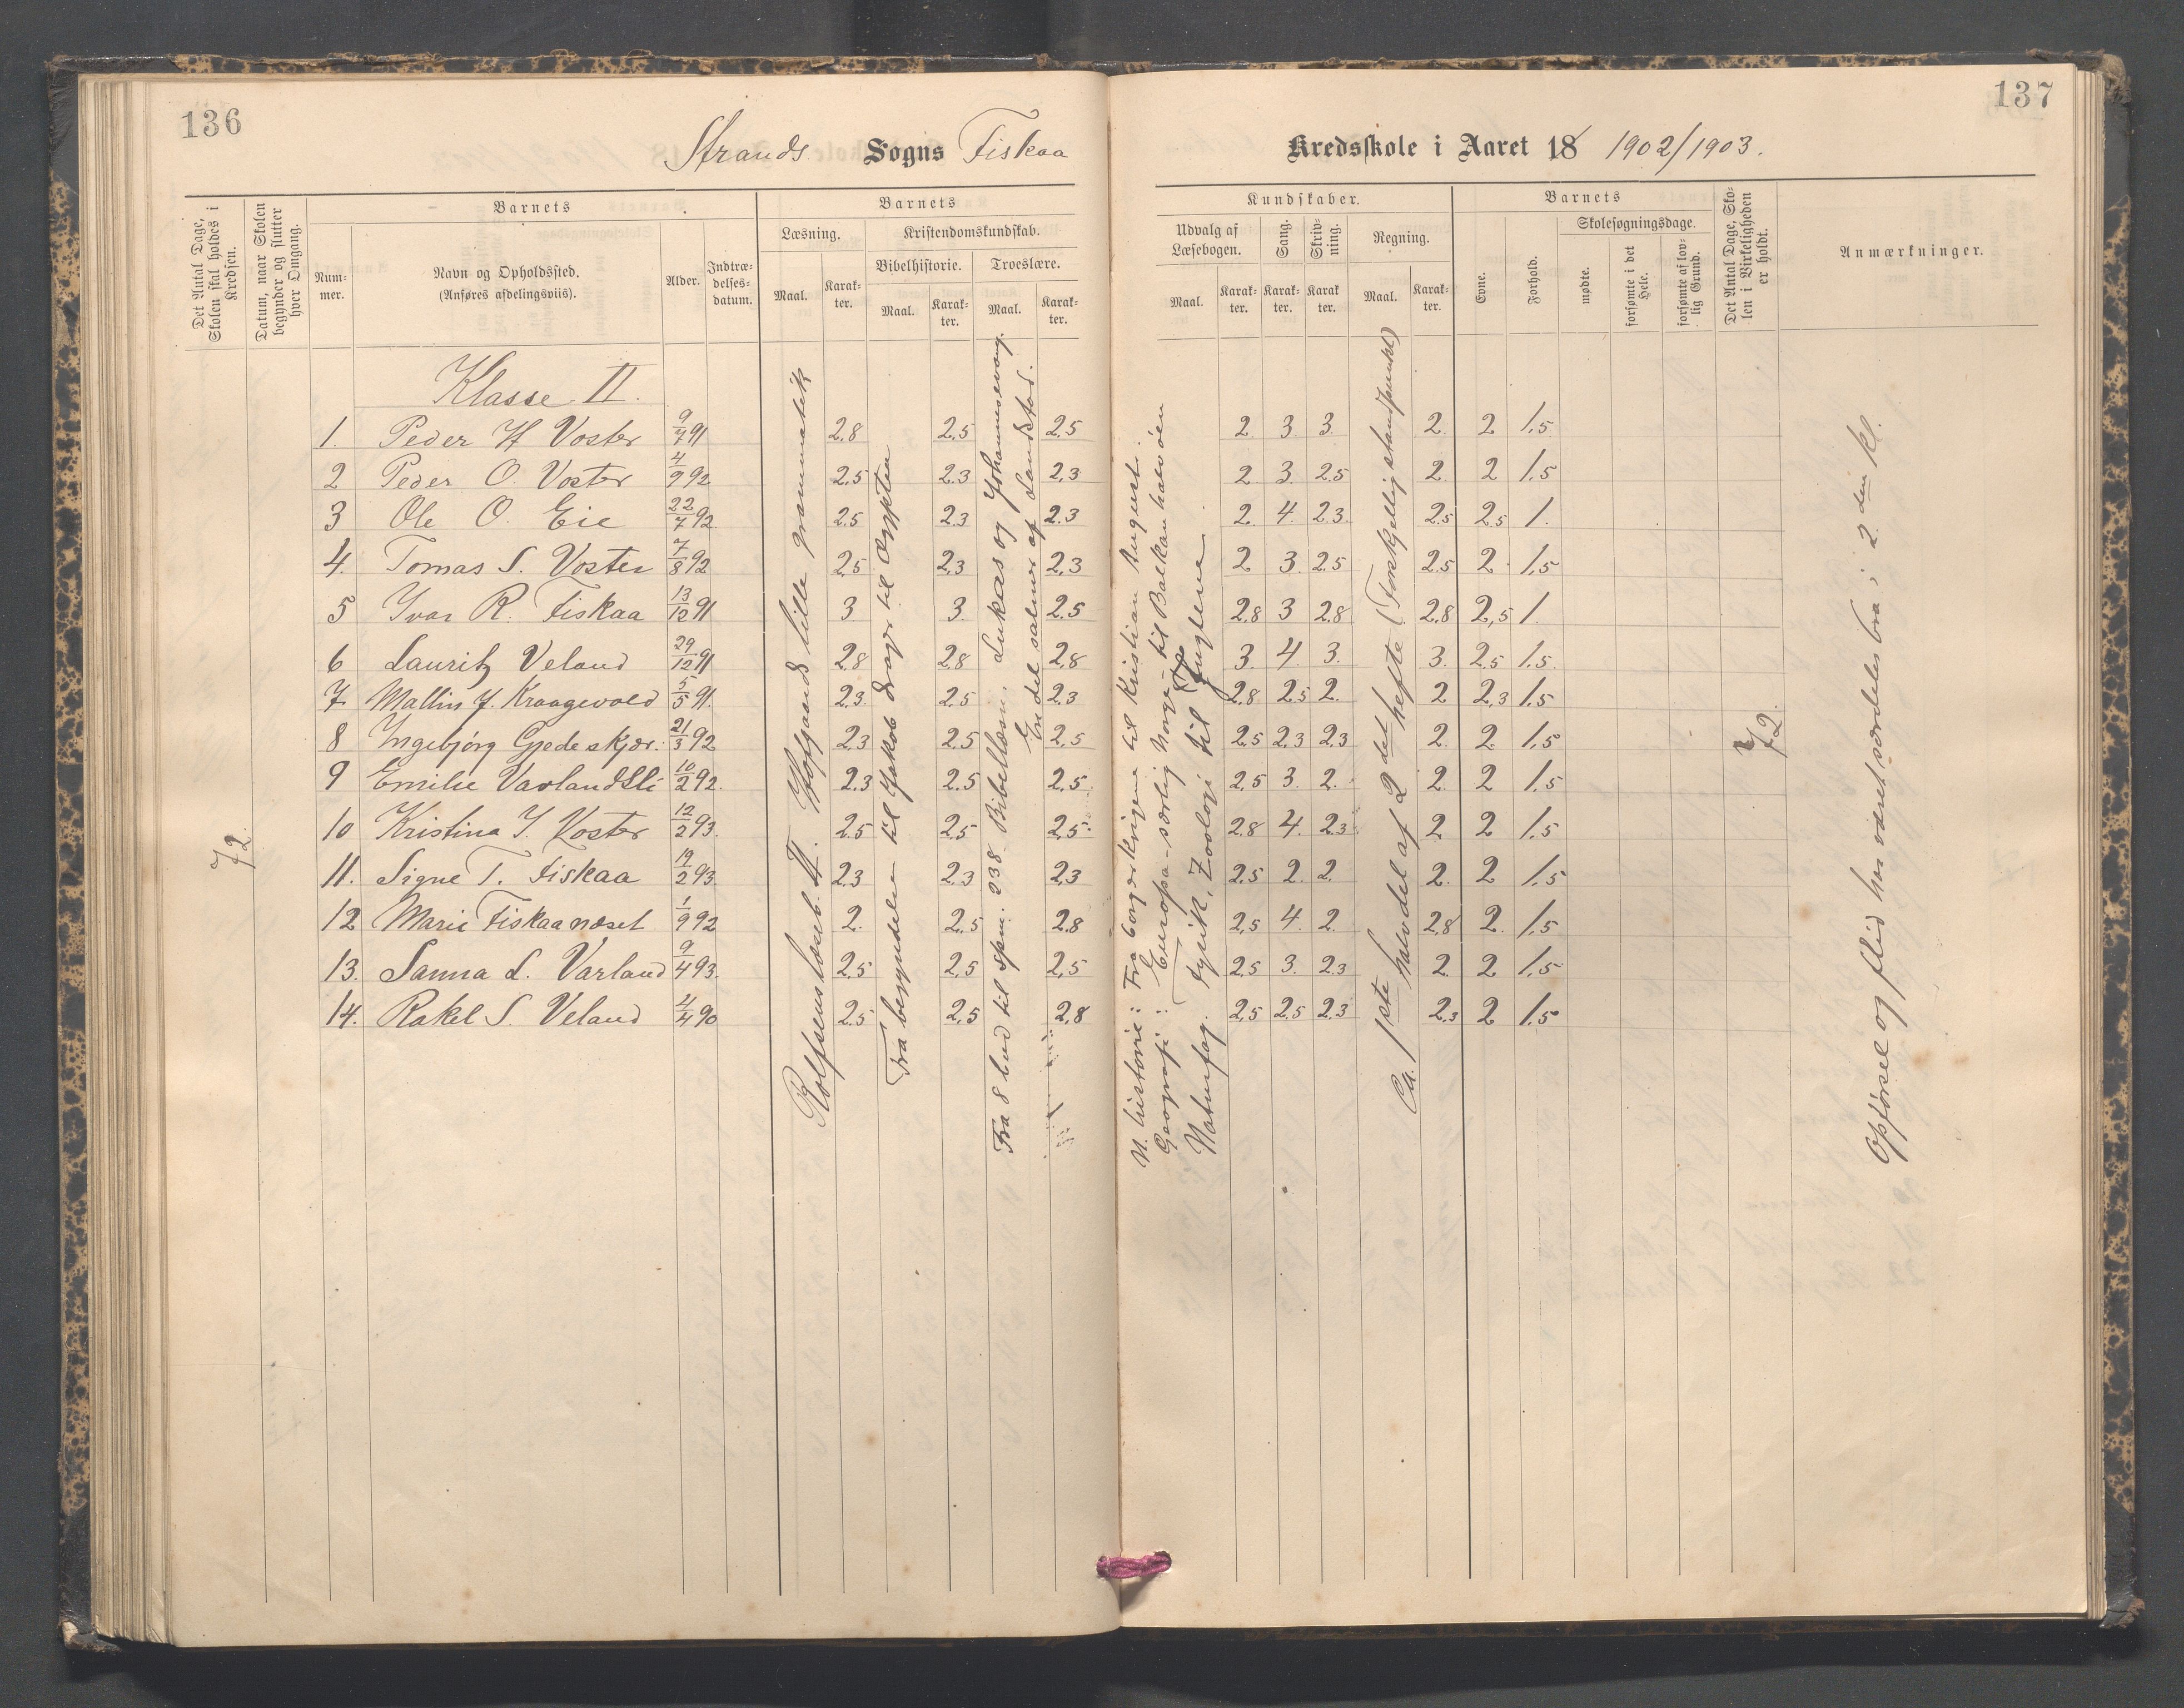 136
Strands Sogns Fiskaa
Det Antal Dage, Skolen skal holdes i Kredsen.
Datum, naar Skolen begynder og slutter hver Omgang.
Barnets
Nummer.
Navn og Opholdssted. (Anføres afdelingsviis).
Alder.
Indtrædelsesdatum.
Barnets
Læsning.
Kristendomskundskab.
Bibelhistorie.
Troeslære.
Maal.
Karakter.
Maal.
Karakter.
Maal.
Karakter.
Klasse II.
1. Peder H Voster 9/7 91 2.8 2.5 2.5
2 Peder O. Voster 4/9 92 2.5 2.3 2.3
3 Ole O. Eie 22/7 92. 2.5 2.3 2.3
4. Tomas S. Voster 7/8 92 2.5 2.3 2.3
5 Ivar R. Fiskaa 13/12 91 3 3. 2.5
6 Lauritz Veland 29/12 91 2.8 2.8 2.8
7. Mallin J. Kraagevold 5/5 91. 2.3 2.5 2.3
8 Ingebjørg Gjedeskjær. 21/3 92 2.3 2.5 2.5
9 Emilie Varlandsli 10/2 92. 2.3 2.5 2.5
10 Kristina I. Voster 12/2 93. 2.5 2.5 2.5
11. Signe T. Fiskaa 19/2 93. 2.3 2.3 2.3
12 Marie Fiskaanæset 1/9 92 2. 2.5 2.8
13. Sanna L. Varland 9/4 93. 2.5 2.5 2.5
14. Rakel S. Veland 4/4 90 2.5 2.5 2.8
72.
Rolfsens læseb. II. Hofgaards lille grammatik
Fra begyndelsen til Jakob drager til Ægypten
Fra 8 bud til spm. 238. Bibellæsn. Lukas og Johannesevang.
En del salmer af Landstad.
137
Kredsskole i Aaret 18 1902/1903.
Kundskaber.
Udvalg af Læsebogen.
Sang.
Skrivning.
Regning.
Maal.
Karakter.
Karakter.
Karakter
Maal.
Karakter.
Barnets
Evne.
Forhold.
Skolesøgningsdage.
mødte.
forsømte i det Hele.
forsømte af lovlig Grund.
Det Antal Dage, Skolen i Virkeligheden er holdt.
Anmærkninger.
2 3. 3. 2. 2 1.5
2 3. 2.5 2. 2 1.5
2. 4. 2.3. 2.5 2.5 1.
2 3. 2.5 2.5 2 1.5
2.8 3 2.8 2.8 2,5 1.
3. 4. 3. 3. 2.5 1.5.
2.8 2.5 2. 2 2.3 1.5
2.5 2.3 2.3 2. 2. 1.5
2.5 3. 2. 2. 2 1.5
2.8 4. 2.3 2 2 1.5
2.5 2. 2. 2. 2 1.5
2.5 4. 2. 2.8 2. 1.5
2.5 3. 2.3 2. 2 1.5
2.5 2.5 2.3 2.3 2 1.5
N. historie: Fra borgerkrigene til Kristian August.
Geografi: Europa - særlig Norge - til Balkanhalvøen
Naturfag. Fysik, Zoologi til fuglene.
Ca. 1ste halvdel af 2det hefte (Forskjellig standpunkt)
72.
Opførsel og flid har været særdeles bra i 2den kl.